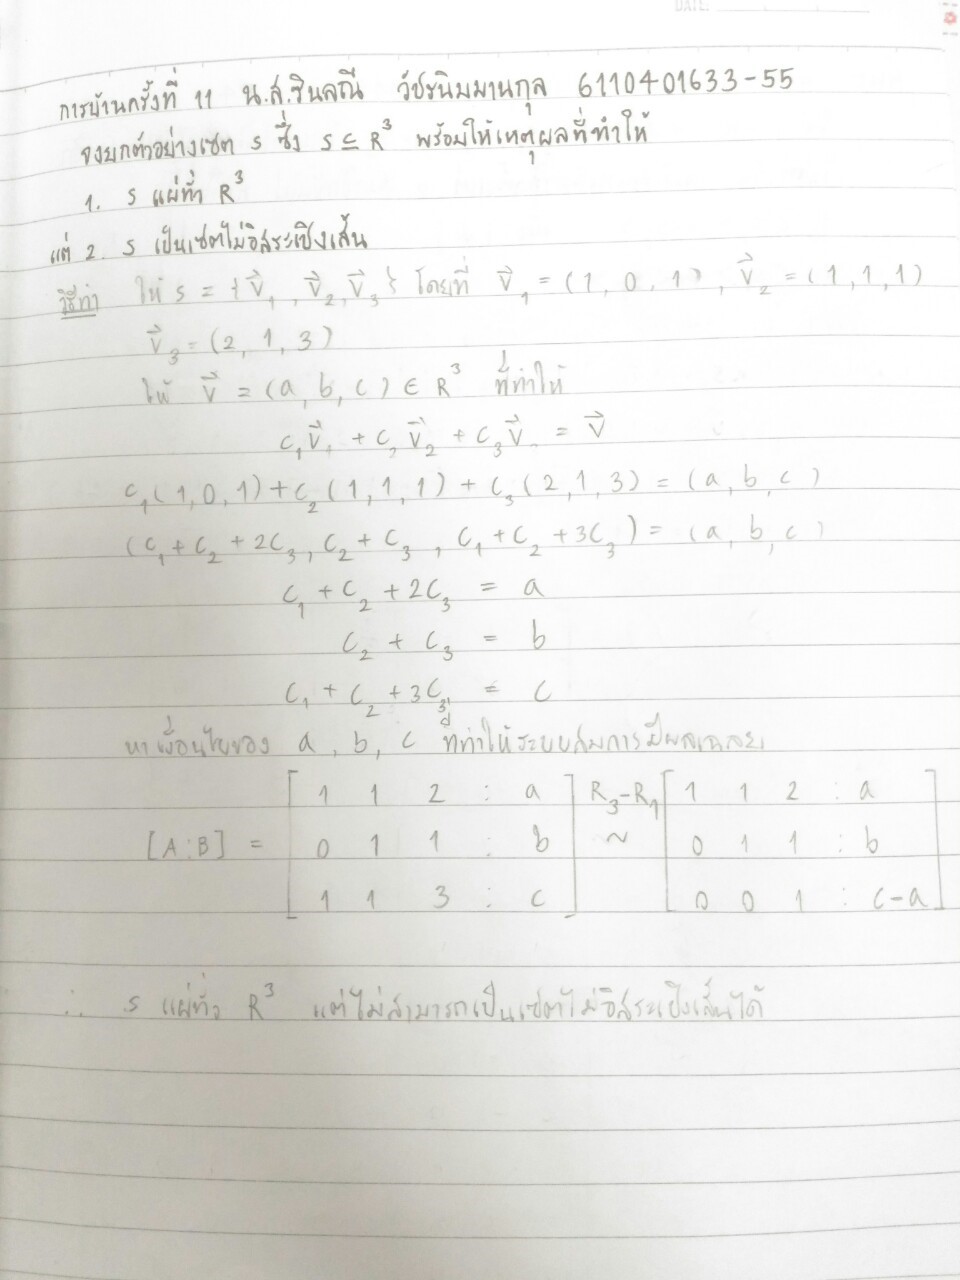 DATE:
การบ้านครั้งที่ 11 น.ส.ชินลณี วัชรนิมมานกุล 6110401633-55
จงยกตัวอย่างเซต S ซึ่ง S ⊆ R³ พร้อมให้เหตุผลที่ทำให้
1. S แผ่ทั่ว R³
แต่ 2. S เป็นเซตไม่อิสระเชิงเส้น
วิธีทำ ให้ S = {v⃗₁, v⃗₂, v⃗₃} โดยที่ v⃗₁ = (1, 0, 1), v⃗₂ = (1, 1, 1)
v⃗₃ = (2, 1, 3)
ให้ v⃗ = (a, b, c) ∈ R³ ที่ทำให้
c₁v⃗₁ + c₂v⃗₂ + c₃v⃗ = v⃗
c₁(1, 0, 1) + c₂(1, 1, 1) + c₃(2, 1, 3) = (a, b, c)
(c₁ + c₂ + 2c₃, c₂ + c₃, c₁ + c₂ + 3c₃) = (a, b, c)
c₁ + c₂ + 2c₃ = a
c₂ + c₃ = b
c₁ + c₂ + 3c₃ = c
หาเงื่อนไขของ a, b, c ที่ทำให้ระบบสมการมีผลเฉลย
1 1 2 : a R₃-R₁ 1 1 2 : a
[A:B] = 0 1 1 : b ~ 0 1 1 : b
1 1 3 : c 0 0 1 : c-a
∴ S แผ่ทั่ว R³ แต่ไม่สามารถเป็นเซตไม่อิสระเชิงเส้นได้